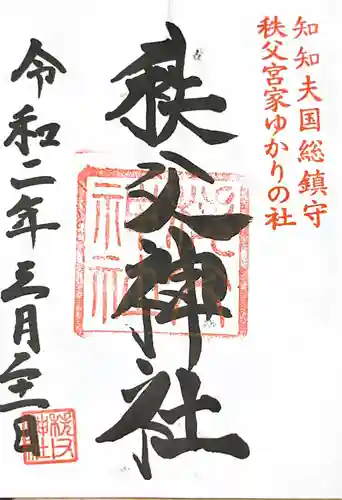 知知夫国総鎮守
秩父宮家ゆかりの社
秩父神社
令和二年三月二十一日
秩父神社